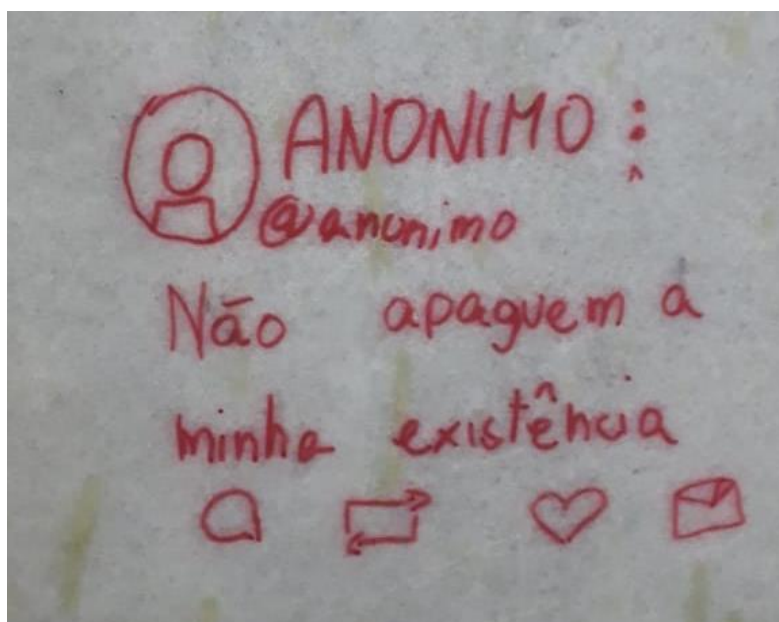 ANONIMO
@anonimo
Não apaguem a
minha existência